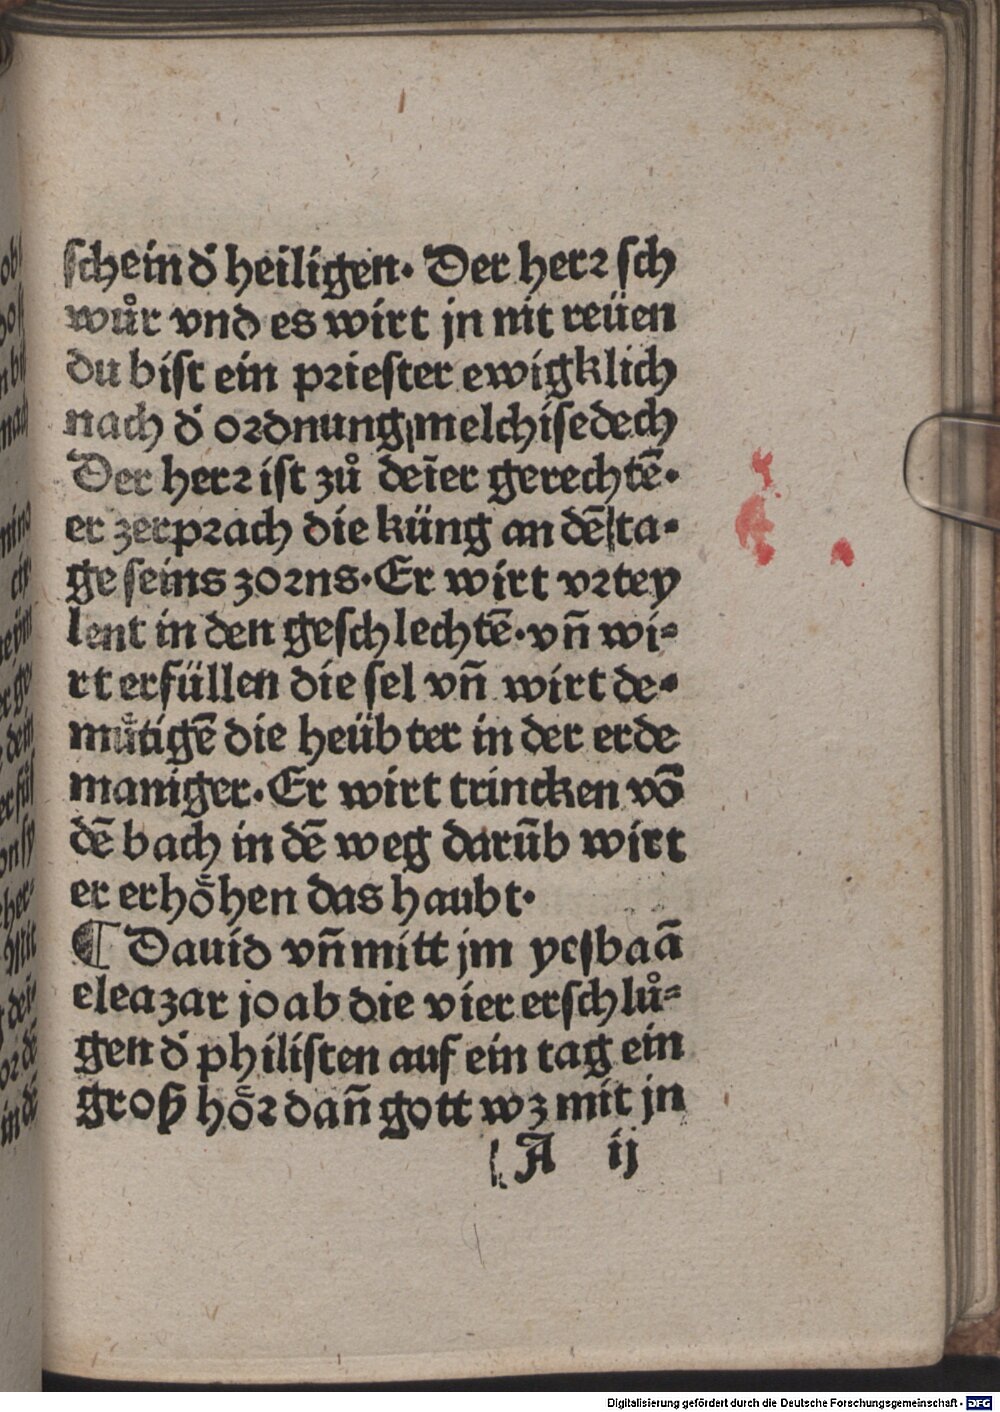 schein d' heiligen. Der herr sch
wůr vnd es wirt jn nit reüen
du bist ein priester ewigklich
nach d' ordnung melchisedech
Der herr ist zů deīer gerechtē.
er zerprach die küng an dē ta-
ge seins zorns. Er wirt vrtey
lent in den geschlechtē. vn̄ wi-
rt erfüllen die sel vn̄ wirt de-
mütigē die heübter in der erde
maniger. Er wirt trincken vō
dē bach in dē weg darūb wirt
er erhöhen das haubt.
¶ Dauid vn̄ mitt jm yesbaā
eleazar joab die vier erschlů-
gen d' philisten auf ein tag ein
groß hör dan̄ gott wz mit jn
A ij
Digitalisierung gefördert durch die Deutsche Forschungsgemeinschaft - DFG